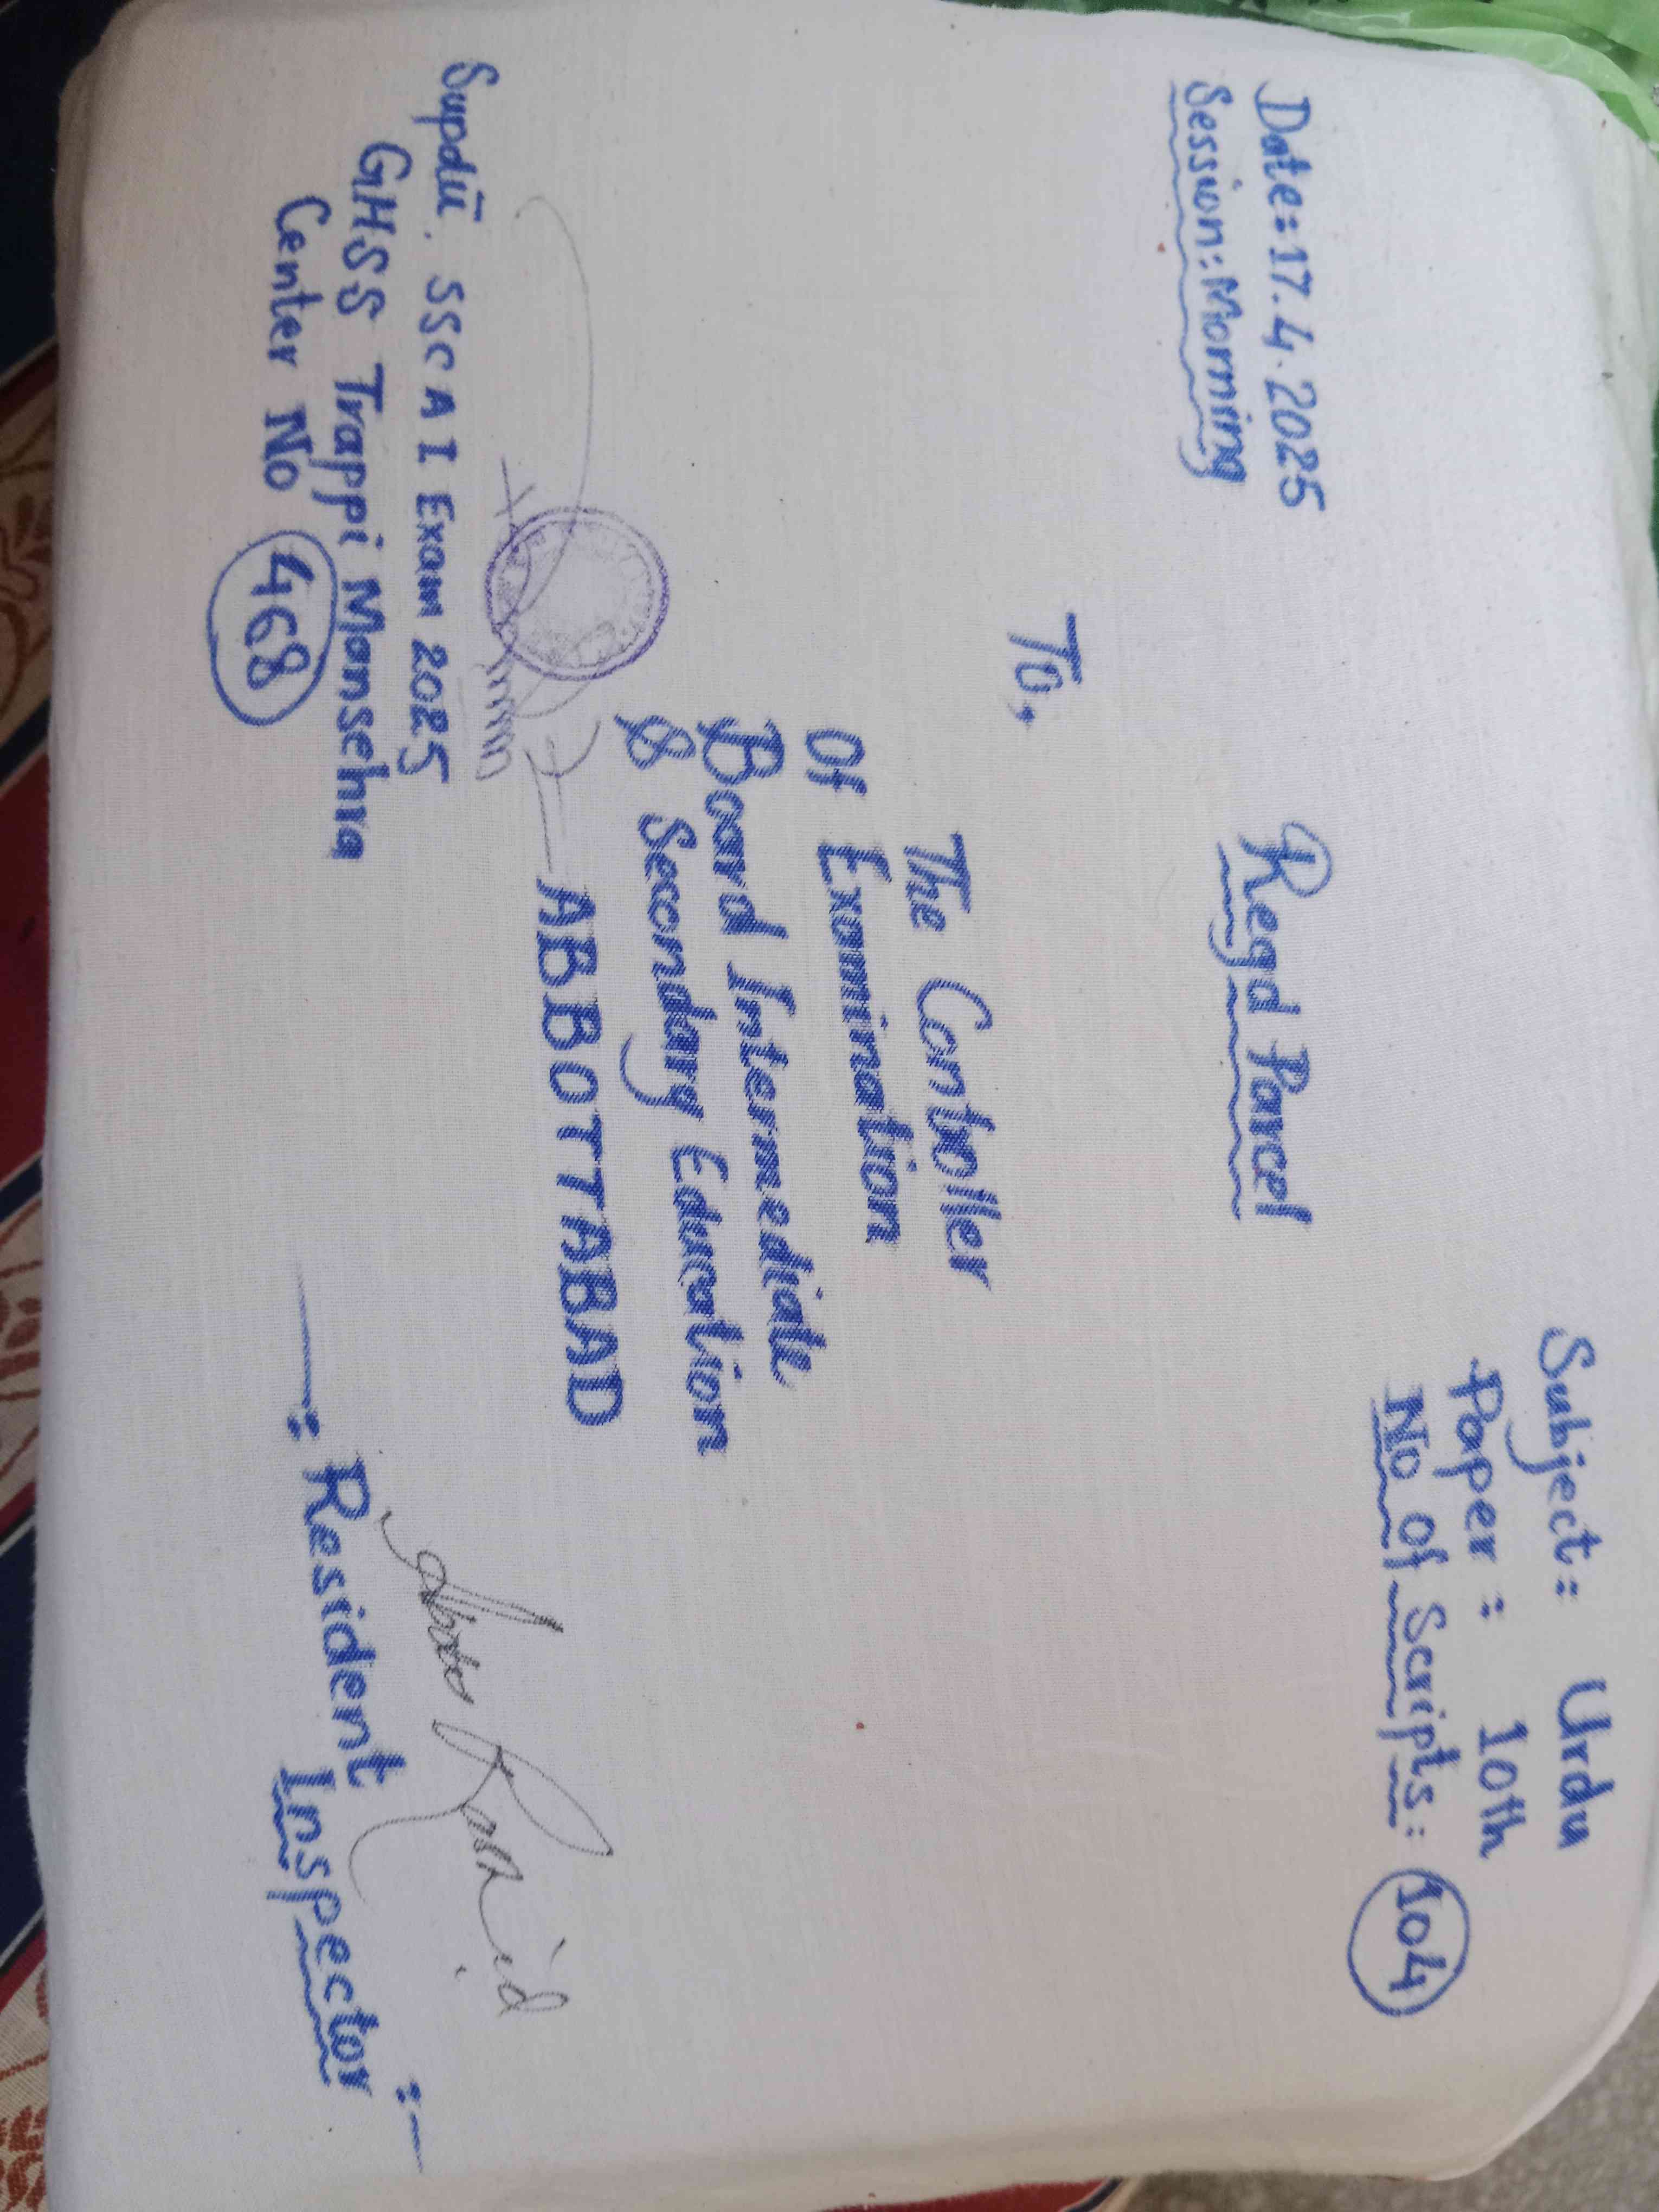 Date: 17.4.2025
Session: Morning
Regd Parcel
Subject: Urdu
Paper: 10th
No Of Scripts: 104
To,
The Controller
Of Examination
Board Intermediate
& Secondary Education
ABBOTTABAD
Supdtt. SSC A I Exam 2025
GHSS Trappi Mansehra
Center No 468
Rashid
Resident
Inspector